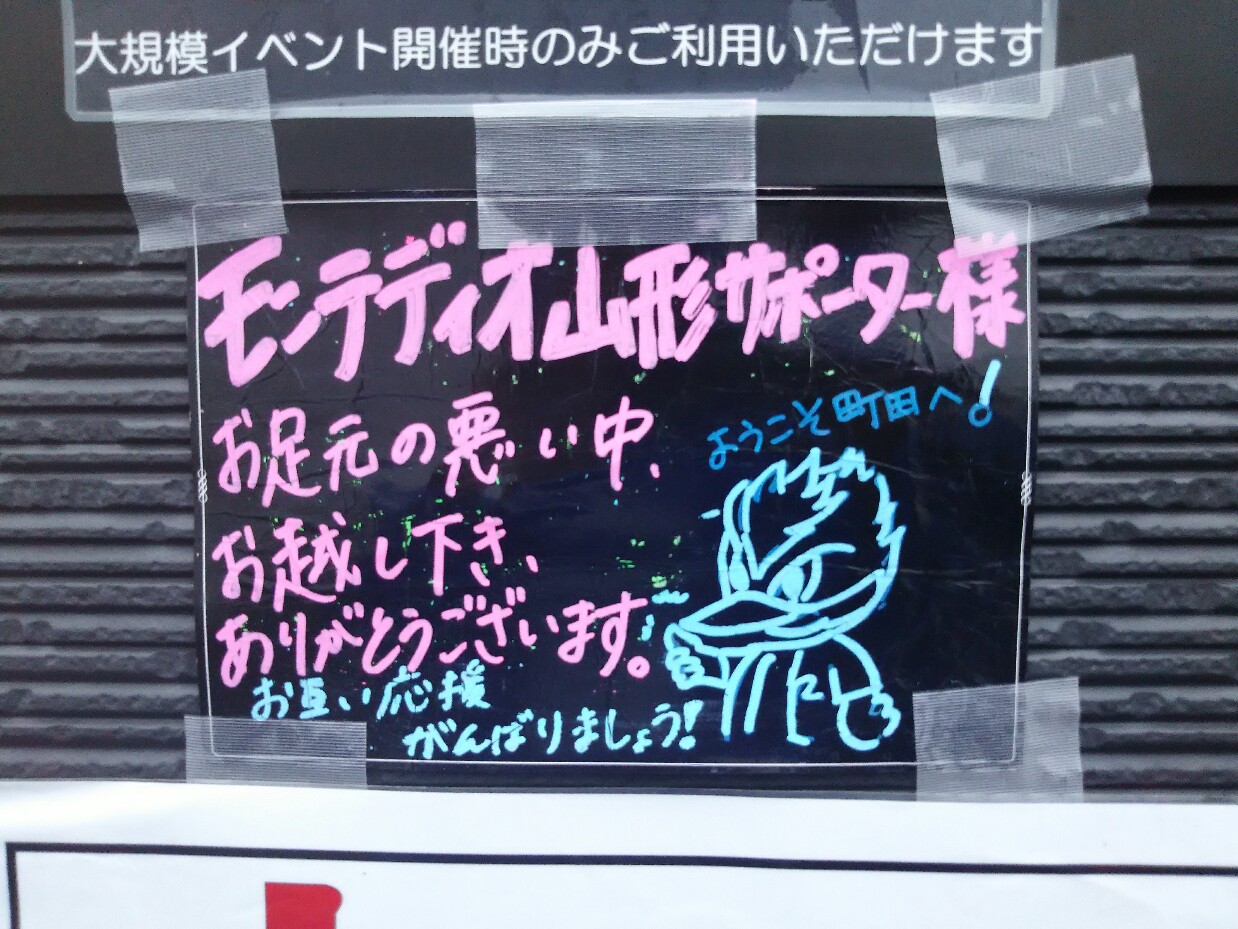 大規模イベント開催時のみご利用いただけます
モンテディオ山形サポーター様
ようこそ町田へ!
お足元の悪い中、
お越し下き、
ありがとうございます。
お互い応援
がんばりましょう!